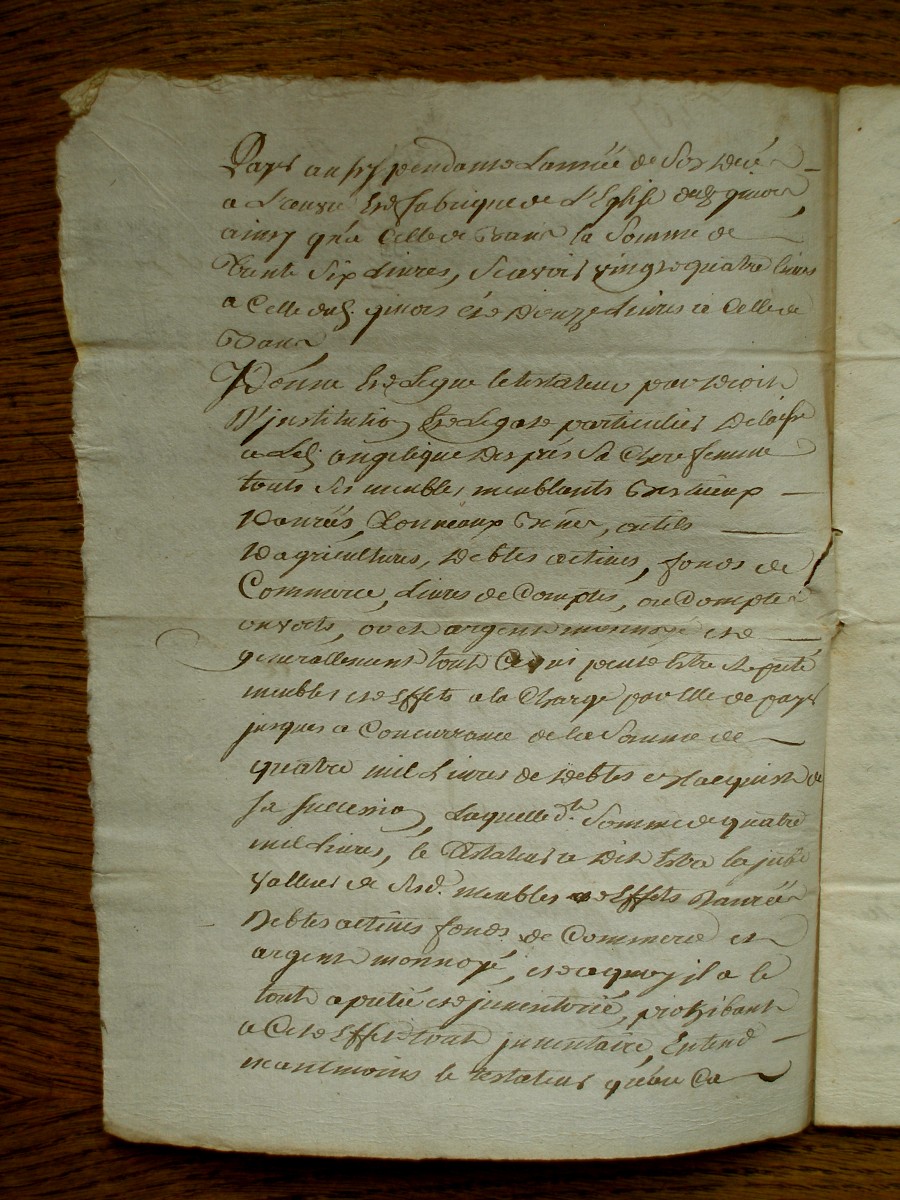 Payé aussy pendant L'année de Son decés
a L'oeuvre et fabrique de L'Eglise dud. quinson
ainsy qu'a Celle de
trente Six Livres, Scavoir vingt quatre livres
a Celle dud. et Douze Livres a Celle de
Donne et Legue le testateur par droit
D'institution et Legat particulier De laisse
a dlle angelique Des prés Sa Chere femme
touts Ses meubles meublants bestieux
Danrées, Tonneaux outils
D'agricultures, Debtes actives, fonds de
Commerce, Livres de Comptes, ou Comptes
ouverts, or et argent monnoyé et
generallement tout Ce qui peut Estre Reputé
meubles et Effets a la Charge par Elle de payer
jusques a Concurrance de la Somme de
quatre mil Livres de Debtes Et acquits de
Sa Succession, Laquelle de. Somme de quatre
mil Livres, le testateur a dit Estre la juste
valleur de Sesd. meubles et Effets Danrées
Debtes actives fonds de Commerce et
argent monnoyé, et a quoy il a le
tout apretié et inventorié, prohibant
a Cet Effet tout inventaire, Entend
neantmoins le testateur qu'au Ca